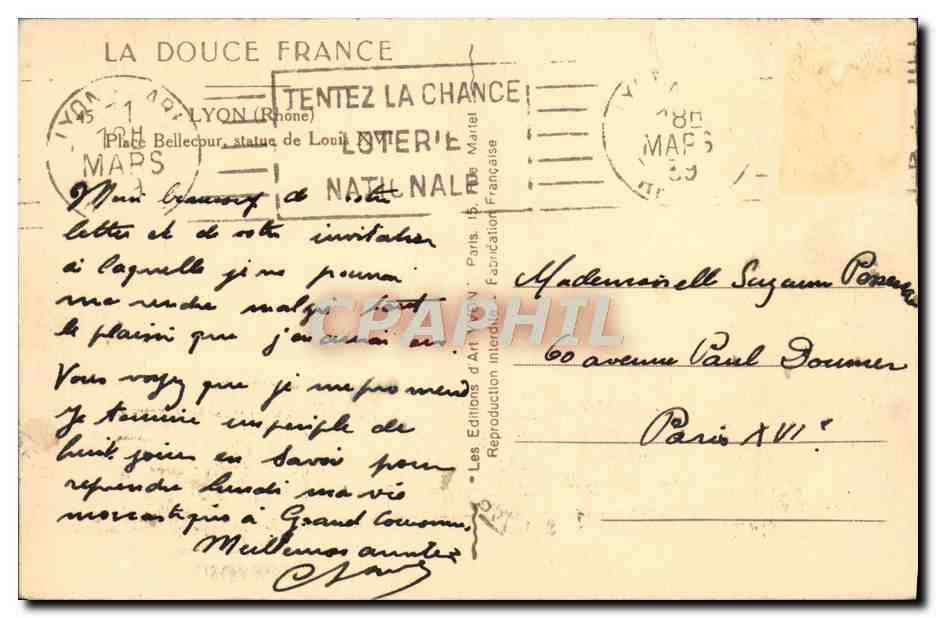 LA DOUCE FRANCE
TENTEZ LA CHANCE
LOTERIE
NATIONALE
18H
MARS
18H
MARS
39
45 LYON (Rhône)
Place Bellecour, statue de Louis XIV
Merci beaucoup de votre
lettre et de votre invitation
à laquelle je ne pourrai
me rendre malgré tout
le plaisir que j'en aurai eu.
Vous voyez que je me promène
Je termine un périple de
huit jours en Savoie pour
reprendre lundi ma vie
monastique à Grand Couronne.
Meilleures amitiés
Les Editions d'Art YVON. Paris, 15, Rue Martel
Reproduction interdite. Fabrication Française
Mademoiselle Suzanne
60 avenue Paul Doumer
Paris XVIe
CPAPHIL